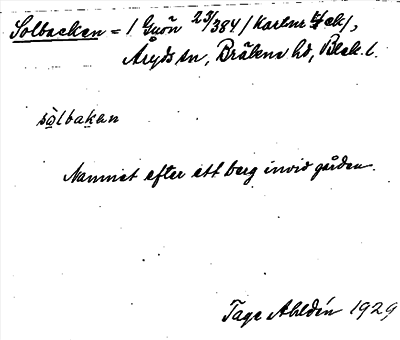 Solbacken = 1 Guön 23/384 / Karlsr
Åryds sn, Bräkne hd, Blek. l.
sòlbakan
Namnet efter ett berg invid gården.
Tage Ahldén 1929